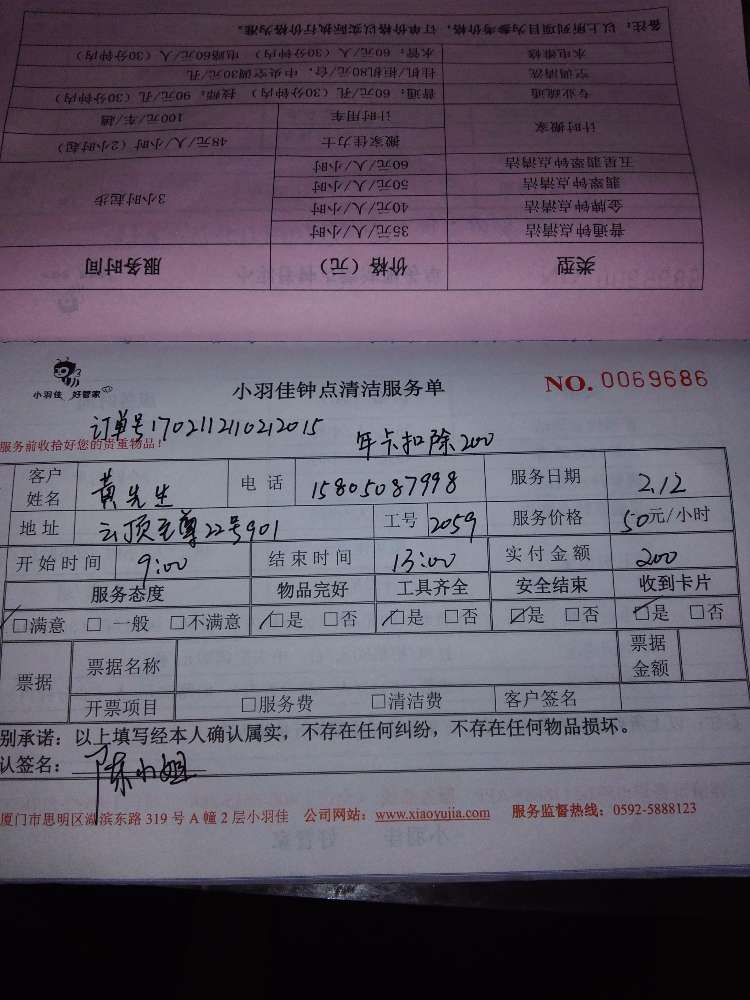 备注：以上所列项目为参考价格，订单价格以实际执行价格为准。
水电维修 水管：60元/人（30分钟内） 电路60元/人（30分钟内）
空调清洗 挂机/柜机80元/台，中央空调30元/孔
专业疏通 普通：60元/孔（30分钟内） 技师：90元/孔（30分钟内）
计时搬家 计时用车 100元/车/趟
搬家佳力士 48元/人/小时（2小时起）
五星翡翠钟点清洁 60元/人/小时
翡翠钟点清洁 50元/人/小时 3小时起步
金牌钟点清洁 40元/人/小时
普通钟点清洁 35元/人/小时
类型 价格（元） 服务时间
小羽佳 好管家
小羽佳钟点清洁服务单
NO. 0069686
订单号170211210212015
服务前收拾好您的贵重物品！
年卡扣除200
客户姓名 黄先生 电话 15805087998 服务日期 2.12
地址 云顶至尊22号901 工号 2059 服务价格 50元/小时
开始时间 9:00 结束时间 13:00 实付金额 200
服务态度 物品完好 工具齐全 安全结束 收到卡片
☑满意 □一般 □不满意 ☑是 □否 ☑是 □否 ☑是 □否 ☑是 □否
票据 票据名称 票据金额
开票项目 □服务费 □清洁费 客户签名
别承诺：以上填写经本人确认属实，不存在任何纠纷，不存在任何物品损坏。
认签名：陈小姐
厦门市思明区湖滨东路319号A幢2层小羽佳 公司网站：www.xiaoyujia.com 服务监督热线：0592-5888123